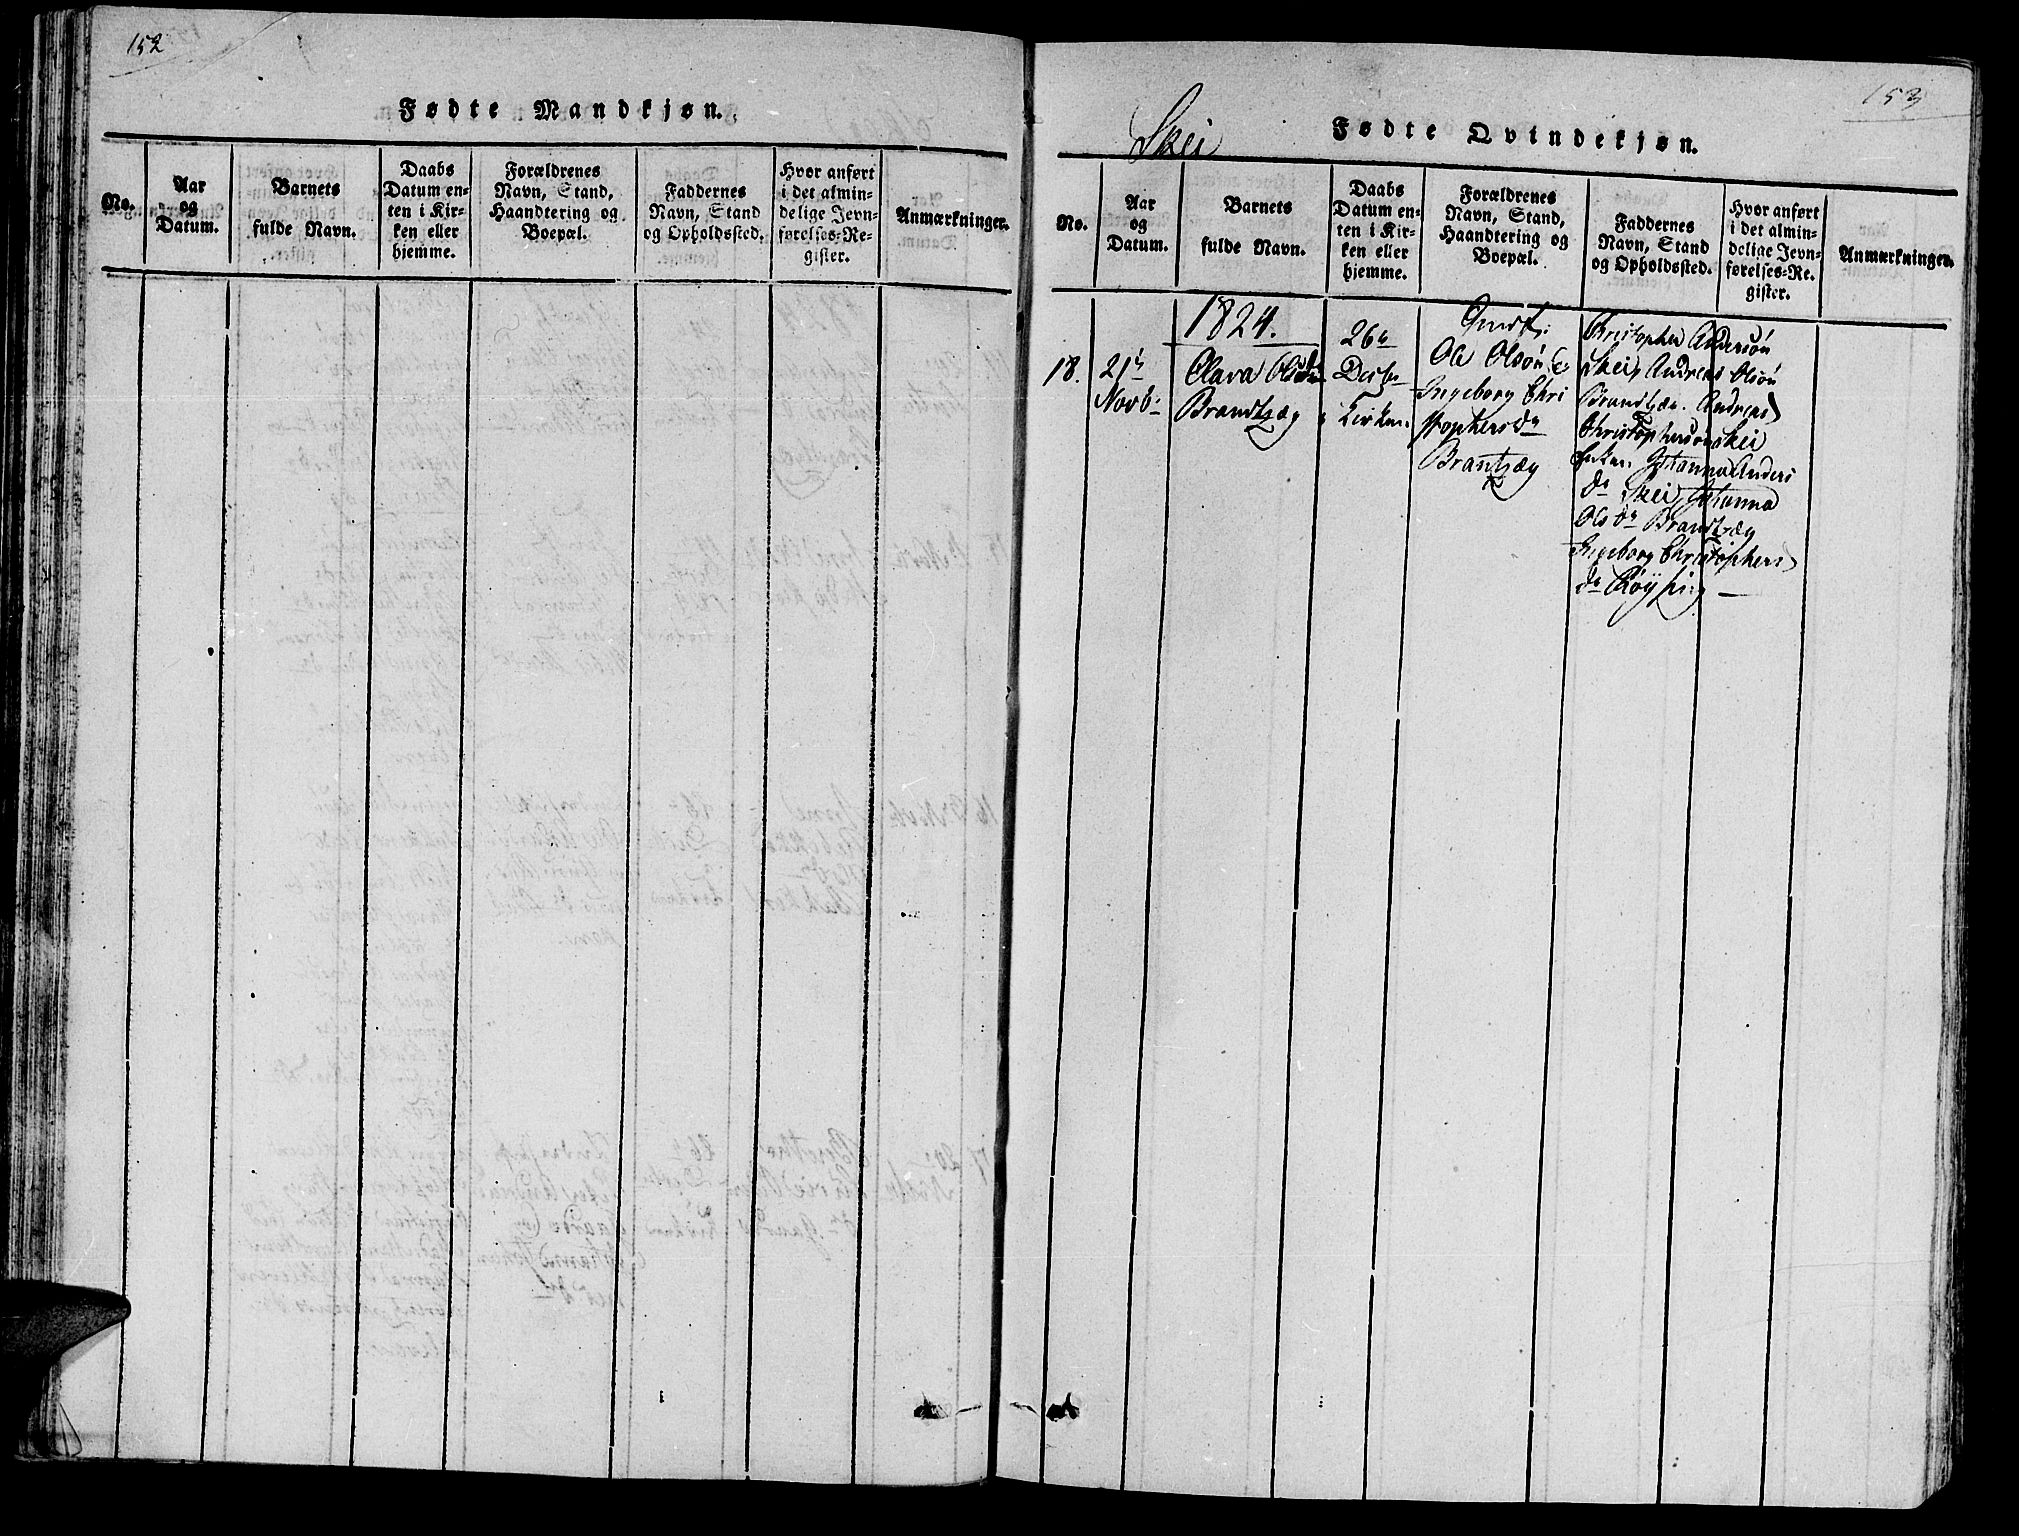 152
Fødte Mandkjøn.
No.
Aar
og
Datum.
Barnets
fulde Navn.
Daabs
Datum en-
ten i Kir-
ken eller
hjemme.
Forældrenes
Navn, Stand,
Haandtering og
Boepæl.
Faddernes
Navn, Stand
og Opholdssted.
Hvor anført
i det almin-
delige Jevn-
førelses-Re-
gister.
Anmærkninger.
153
Skei
Fødte Qvindekjøn.
No.
Aar
og
Datum.
Barnets
fulde Navn.
Daabs
Datum en-
ten i Kir-
ken eller
hjemme.
Forældrenes
Navn, Stand,
Haandtering og
Boepæl.
Faddernes
Navn, Stand
og Opholdssted.
Hvor anført
i det almin-
delige Jevn-
førelses-Re-
gister.
Anmærkninger.
1824.
18.
21
Novb
Olava Olsd
Brandtzæg
26
Decbr
Kirken.
Ole Olsøn
Ingeborg Chri
stophersd
Brantzæg
Christopher Andersøn
Skei, Andreas Olsøn
Brandtzæg. Andreas
Christophersen Skei
Johanna Anders
dr Skei, Johanna
Olsdr Brandtzæg
Ingeborg Christophers
dr Røysing